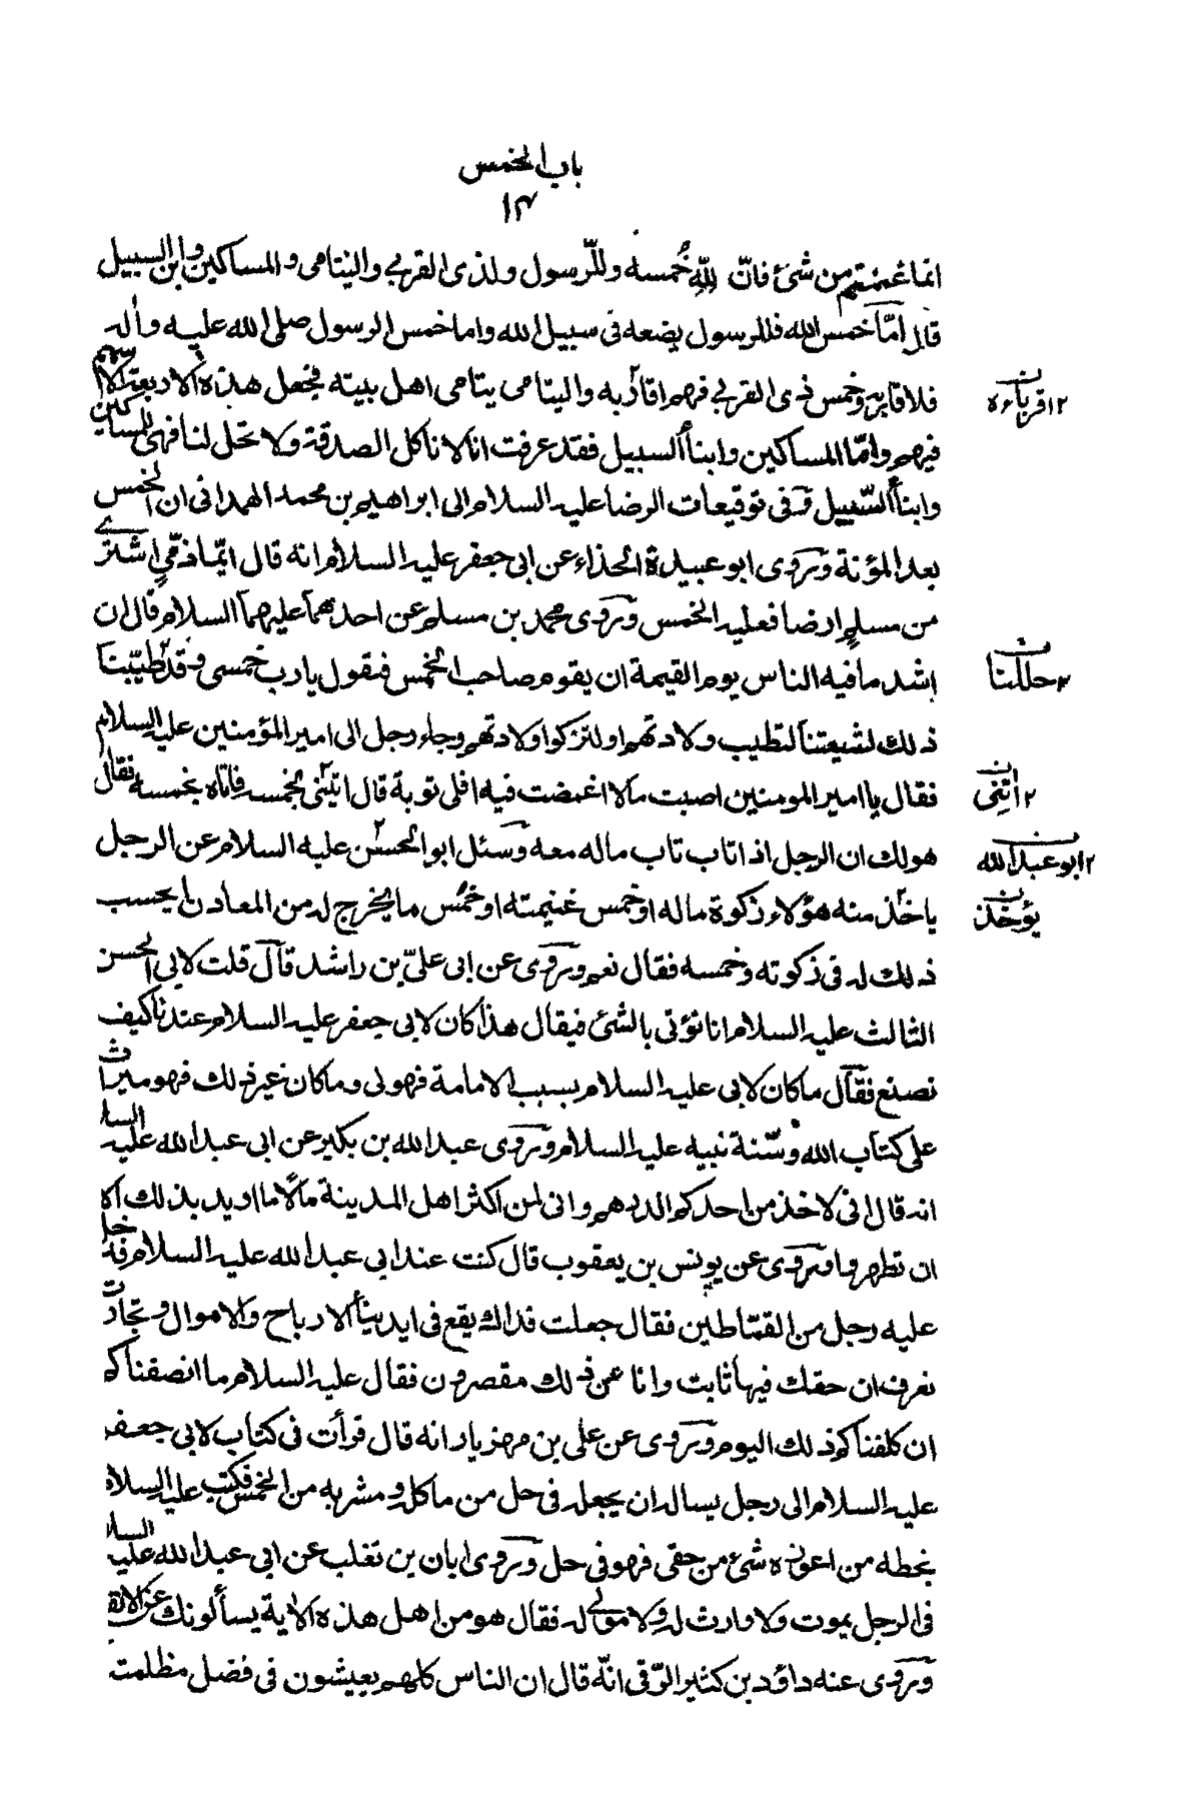 باب الخمس
١٣
انما غنمتم من شئ فانّ لِلّٰهِ خُمسه وللرّسول ولذى القربى واليتامى والمساكين وابن السبيل
قال امّا خمس الله فللرسول يضعه فى سبيل الله واما خمس الرسول صلى الله عليه واله
فلاقاربه وخمس ذى القربى فهم اقاربه واليتامى يتامى اهل بيته فجعل هذه الاربعة الاسهم
٢ اقرباءه ن
فيهم وامّا المساكين وابناء السبيل فقد عرفت انا لا ناكل الصدقة ولا تحل لنا فهى للمساكين
وابناء السّبيل وفى توقيعات الرضا عليه السلام الى ابراهيم بن محمد الهمدانى ان الخمس
بعد المؤنة وروى ابو عبيدة الحذاء عن ابى جعفر عليه السلام انه قال ايّما ذمّىٍ اشترى
من مسلمٍ ارضا فعليه الخمس وروى محمد بن مسلم عن احدهما عليهما السلام قال ان
اشد ما فيه الناس يوم القيمة ان يقوم صاحب الخمس فيقول يا رب خمسى وقد طيّبنا
٢ حللنا
ذلك لشيعتنا لتطيب ولادتهم او لتزكوا ولادتهم وجاء رجل الى امير المؤمنين عليه السلام
فقال يا امير المومنين اصبت مالا اغمضت فيه افلى توبة قال ائتنى بخمسه فاتاه بخمسه فقال
٢ ائتِنى ن
هو لك ان الرجل اذا تاب تاب ماله معه وسئل ابو الحسن عليه السلام عن الرجل
٢ ابو عبد الله ن
ياخذ منه هؤلاء زكوة ماله او خمس غنيمته او خمس ما يخرج له من المعادن ايحسب
يؤخذ ن
ذلك له فى زكوته وخمسه فقال نعم وروى عن ابى علىّ بن راشد قال قلت لابى الحسن
الثالث عليه السلام انا نؤتى بالشئ فيقال هذا كان لابى جعفر عليه السلام عندنا كيف
نصنع فقال ما كان لابى عليه السلام بسبب الامامة فهو لى وما كان غير ذلك فهو ميراث
على كتاب الله وسّنة نبيه عليه السلام وروى عبد الله بن بكير عن ابى عبد الله عليه السلا
انه قال انى لاخذ من احدكم الدرهم وانى لمن اكثر اهل المدينة مالًا ما اريد بذلك الا
ان تطهروا وروى عن يونس بن يعقوب قال كنت عند ابى عبد الله عليه السلام فدخل
عليه رجل من القمّاطين فقال جعلت فداك يقع فى ايدينا الارباح والاموال وتجارات
نعرف ان حقك فيها ثابت وانا عن ذلك مقصرون فقال عليه السلام ما انصفناكم
ان كلفناكم ذلك اليوم وروى عن على بن مهزيار انه قال قرأت فى كتاب لابى جعفر
عليه السلام الى رجل يساله ان يجعله فى حل من ماكله ومشربه من الخمس فكتب عليه السلام
بخطه من اعوزه شئ من حقى فهو فى حل وروى ابان بن تغلب عن ابى عبد الله عليه السلا
فى الرجل يموت ولا وارث له ولا مولى له فقال هو من اهل هذه الاية يسألونك عن الانفا
وروى عنه داؤد بن كثير الرّقى انّه قال ان الناس كلهم يعيشون فى فضل مظلمت